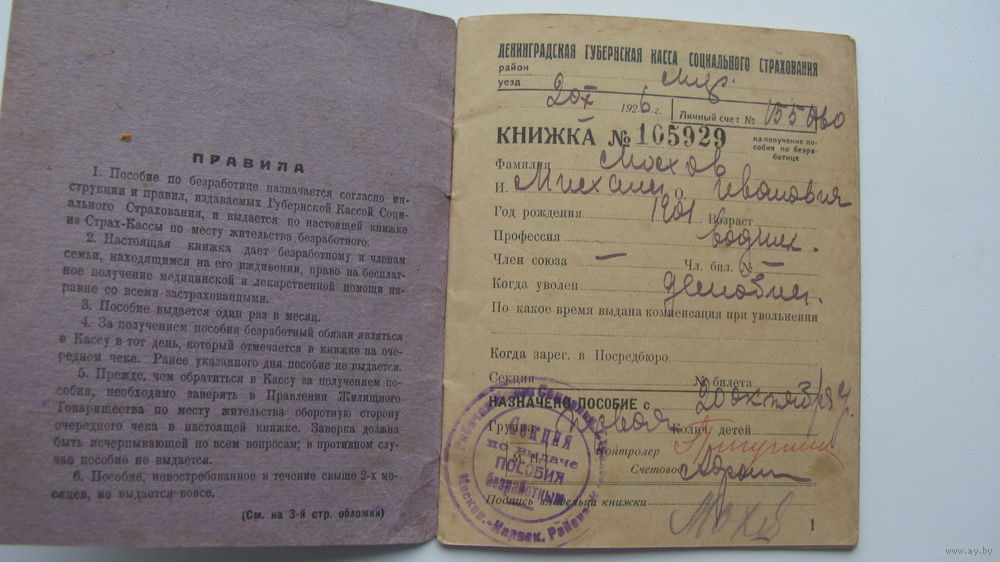 ПРАВИЛА
1. Пособие по безработице назначается согласно ин-
струкции и правил, издаваемых Губернской Кассой Соци-
ального Страхования, и выдается по настоящей книжке
из Страх-Кассы по месту жительства безработного.
2. Настоящая книжка дает безработному и членам
семьи, находящимся на его иждивении, право на бесплат-
ное получение медицинской и лекарственной помощи на-
равне со всеми застрахованными.
3. Пособие выдается один раз в месяц.
4. За получением пособия безработный обязан являться
в Кассу в тот день, который отмечается в книжке на оче-
редном чеке. Ранее указанного дня пособие не выдается.
5. Прежде, чем обратиться в Кассу за получением по-
собия, необходимо заверить в Правлении Жилищного
Товарищества по месту жительства оборотную сторону
очередного чека в настоящей книжке. Заверка должна
быть исчерпывающей по всем вопросам; в противном слу-
чае пособие не выдается.
6. Пособие, невостребованное в течение свыше 2-х ме-
сяцев, не выдается вовсе.
(См. на 3-й стр. обложки)
ЛЕНИНГРАДСКАЯ ГУБЕРНСКАЯ КАССА СОЦИАЛЬНОГО СТРАХОВАНИЯ
район
уезд
20/X 1926 г. Личный счет №
КНИЖКА № 105929 на получение по-
собия по безра-
ботице
Фамилия
И. Михаил О. Иванович
Год рождения 1901 Возраст
Профессия водник.
Член союза — Чл. бил. № —
Когда уволен демобил.
По какое время выдана компенсация при увольнении
Когда зарег. в Посредбюро
Секция № билета
НАЗНАЧЕНО ПОСОБИЕ с 20 октября
Группа первая Колич. детей
Контролер
Счетовод
Подпись владельца книжки
1
СЕКЦИЯ
по выдаче
ПОСОБИЯ
безработным
Москов.-Нарвск. Района
www.ay.by